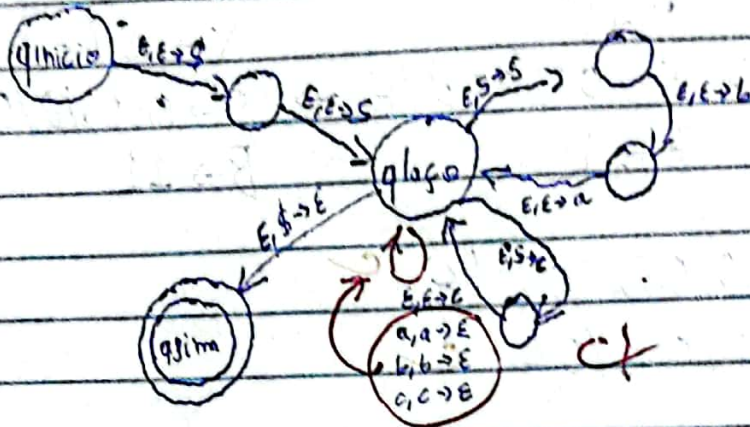 qinicio
ε,ε→$
ε,ε→S
ε,S→S
ε,ε→b
qlaço
ε,ε→a
ε,$→ε
ε,S→c
ε,ε→ε
a,a→ε
b,b→ε
c,c→ε